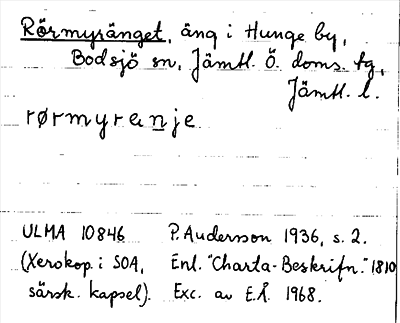 Rörmyränget, äng i Hunge by,
Bodsjö sn, Jämtl. Ö. doms. tg,
Jämtl. l.
rørmyrenje
ULMA 10846 P. Andersson 1936, s. 2.
(Xerokop. i SOA, Enl. "Charta-Beskrifn." 1810
särsk. kapsel). Exc. av E.Å. 1968.